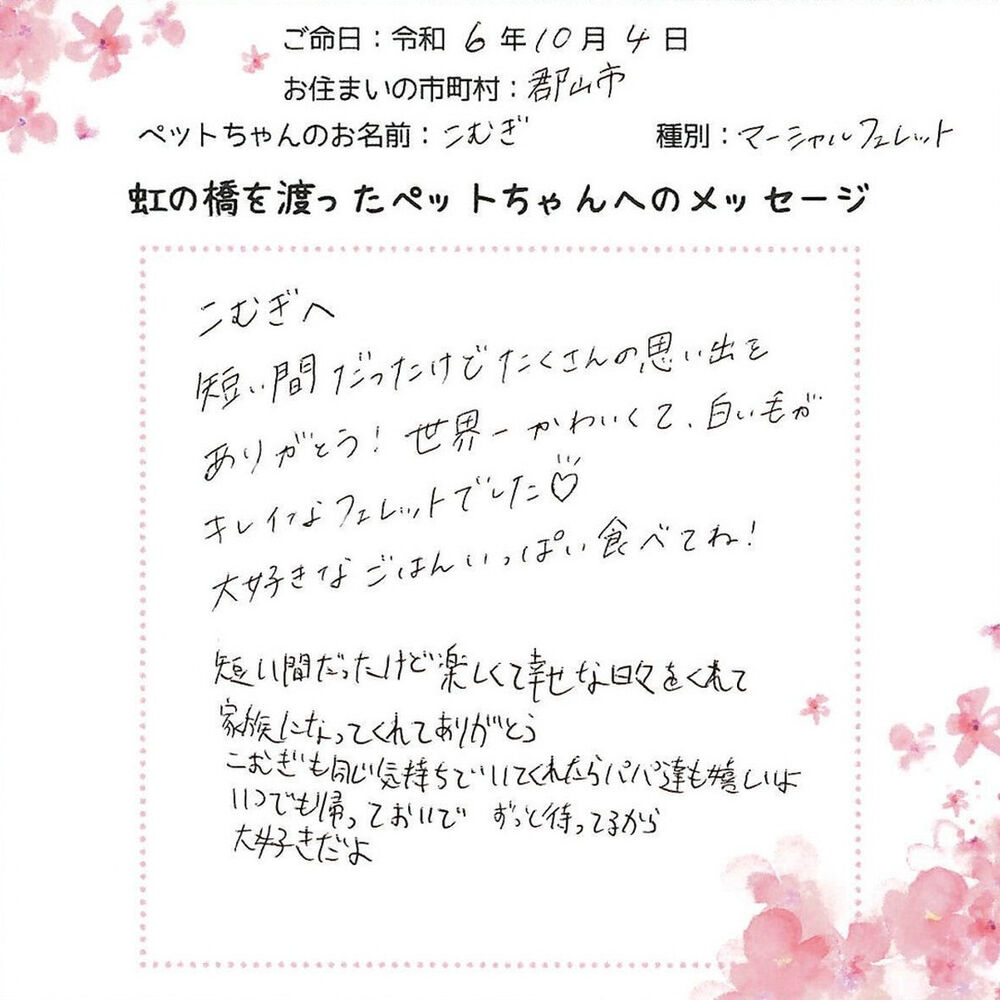 ご命日：令和 6 年 10 月 4 日
お住まいの市町村：郡山市
ペットちゃんのお名前：こむぎ 種別：マーシャルフェレット
虹の橋を渡ったペットちゃんへのメッセージ
こむぎへ
短い間だったけどたくさんの思い出を
ありがとう！世界一かわいくて、白い毛が
キレイなフェレットでした♡
大好きなごはんいっぱい食べてね！
短い間だったけど楽しくて幸せな日々をくれて
家族になってくれてありがとう
こむぎも同じ気持ちでいてくれたらパパ達も嬉しいよ
いつでも帰っておいで ずっと待ってるから
大好きだよ